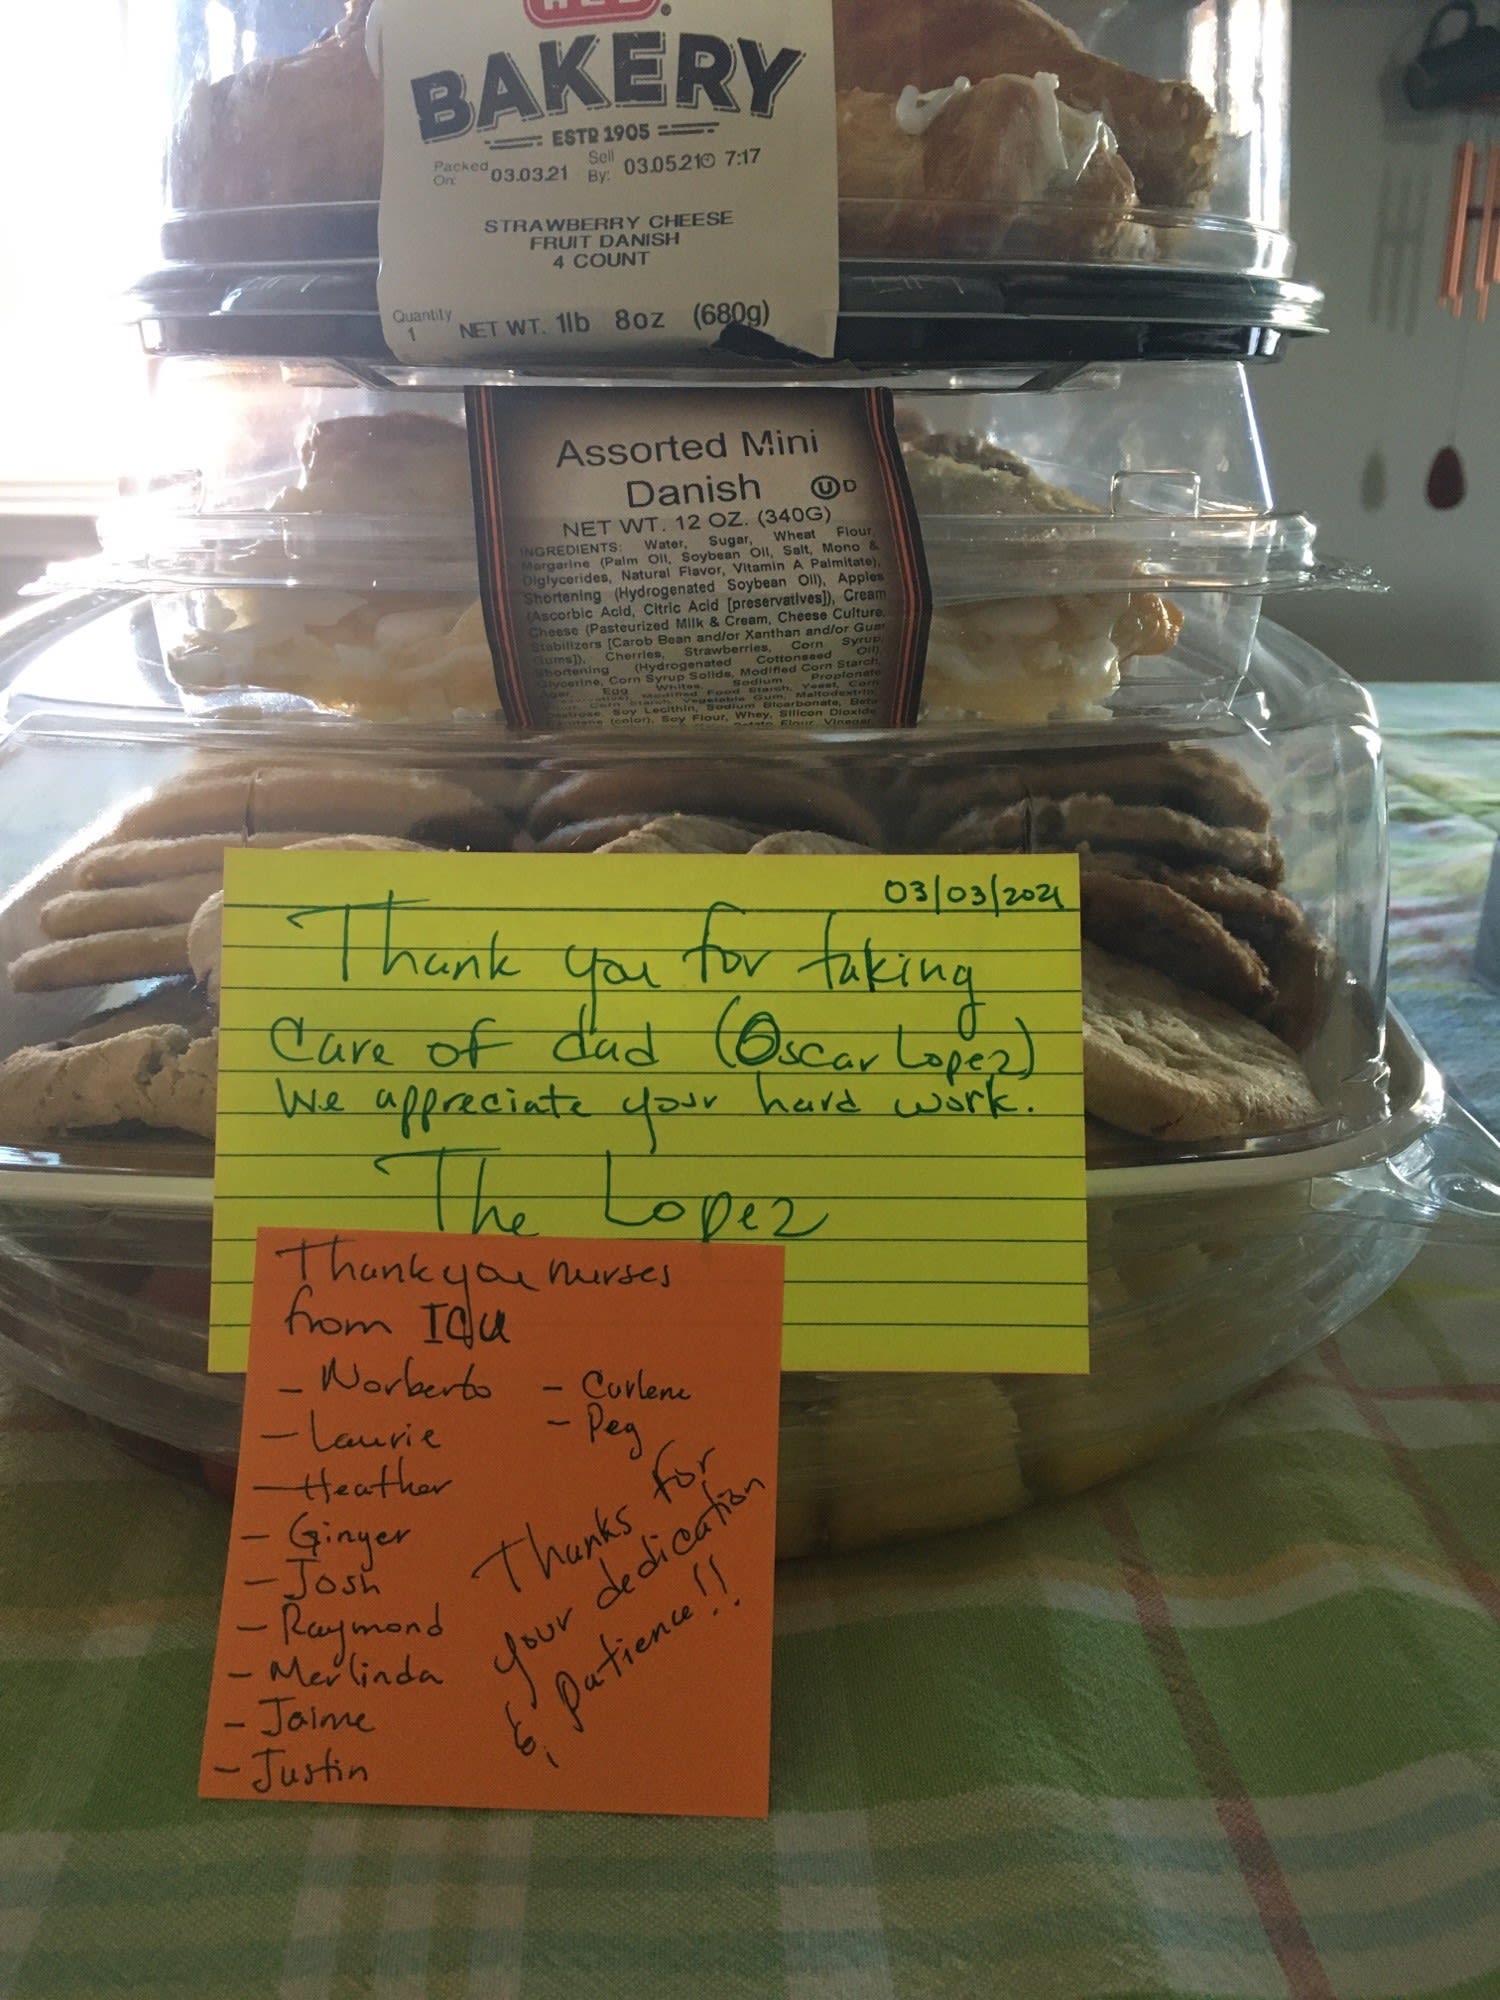 BAKERY
ESTD 1905
Packed On: 03.03.21 Sell By: 03.05.21 7:17
STRAWBERRY CHEESE
FRUIT DANISH
4 COUNT
Quantity 1 NET WT. 1lb 8oz (680g)
Assorted Mini
Danish U D
NET WT. 12 OZ. (340G)
INGREDIENTS: Water, Sugar, Wheat Flour,
Margarine (Palm Oil, Soybean Oil, Salt, Mono &
Diglycerides, Natural Flavor, Vitamin A Palmitate),
Shortening (Hydrogenated Soybean Oil), Apples
(Ascorbic Acid, Citric Acid [preservatives]), Cream
Cheese (Pasteurized Milk & Cream, Cheese Culture,
Stabilizers [Carob Bean and/or Xanthan and/or Guar
Gums]), Cherries, Strawberries, Corn Syrup,
Shortening (Hydrogenated Cottonseed Oil),
Glycerine, Corn Syrup Solids, Modified Corn Starch,
Agar, Egg Whites, Sodium Propionate
Modified Food Starch, Yeast, Corn
Corn Starch, Vegetable Gum, Maltodextrin,
Dextrose, Soy Lecithin, Sodium Bicarbonate, Beta
(color), Soy Flour, Whey, Silicon Dioxide
Potato Flour, Vinegar
03/03/2021
Thank you for taking
care of dad (Oscar Lopez)
We appreciate your hard work.
The Lopez
Thank you nurses
from ICU
- Norberto - Carlene
- Laurie - Peg
- Heather
- Ginger
- Josh
- Raymond
- Merlinda
- Jaime
- Justin
Thanks for
your dedication
& patience!!